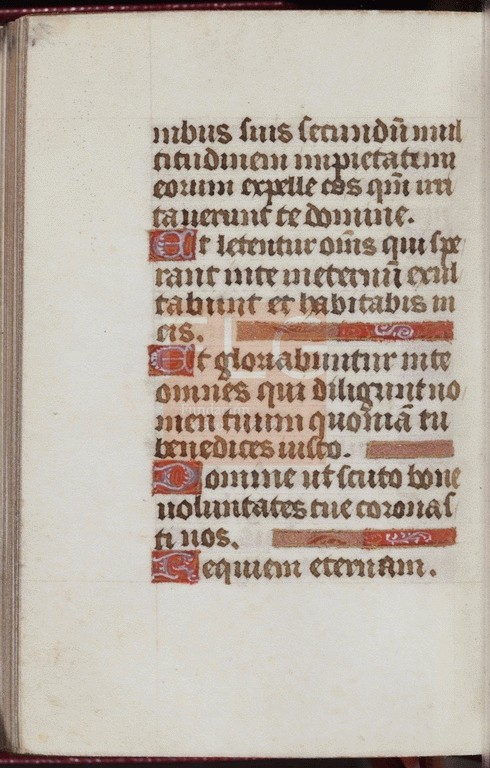 nibus suis secundũ mul
titudinem impietatum
eorum expelle eos qm̃ irri
tauerunt te domine.
Et letentur om̃s qui spe
rant inte ineternũ exul
tabunt et habitabis in
eis.
Et gloriabuntur inte
omnes qui diligunt no
men tuum quoniã tu
benedices iusto.
Domine ut scuto bone
voluntatis tue coronas
ti nos.
Requiem eternam.